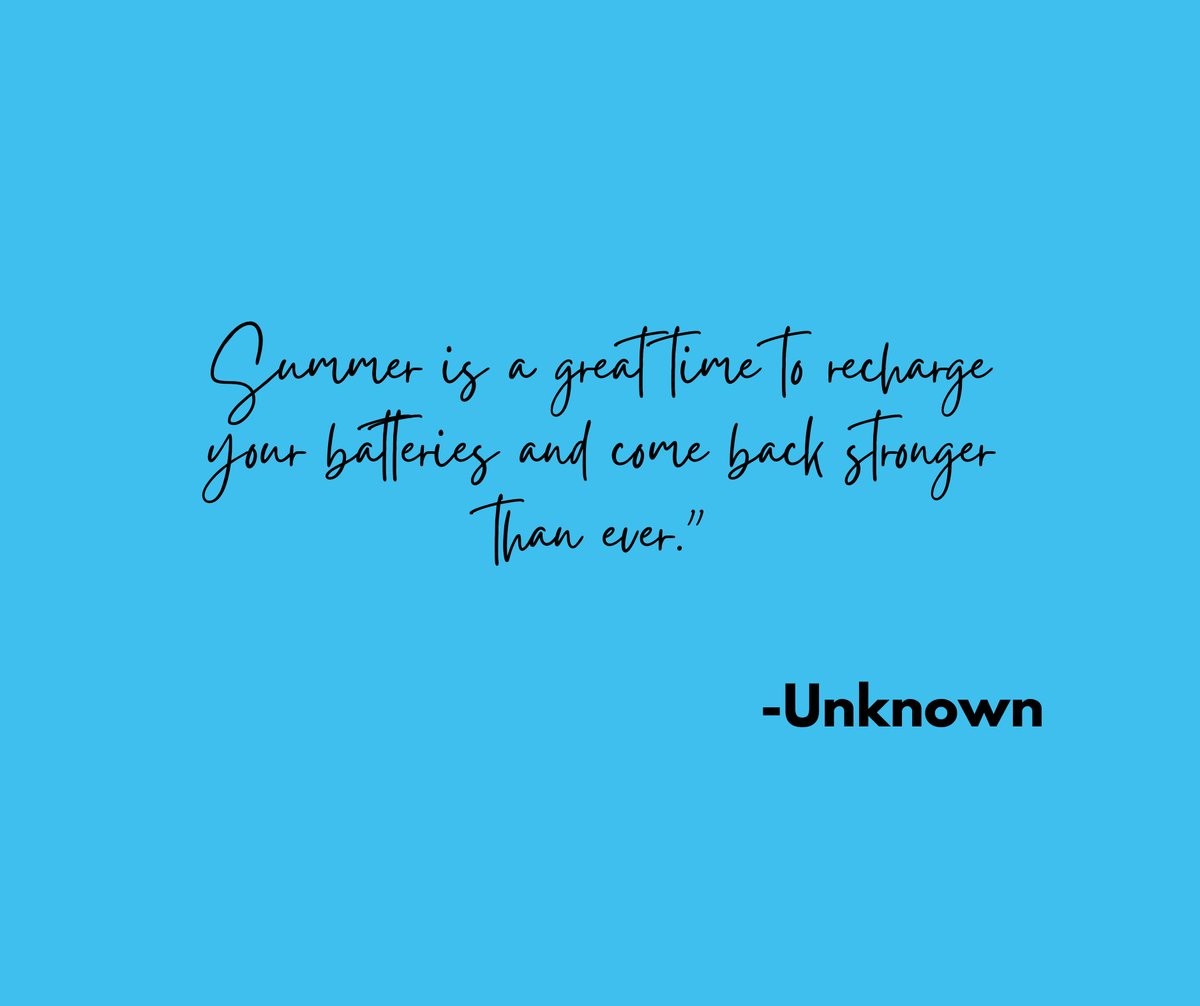 Summer is a great time to recharge
your batteries and come back stronger
than ever.”
-Unknown